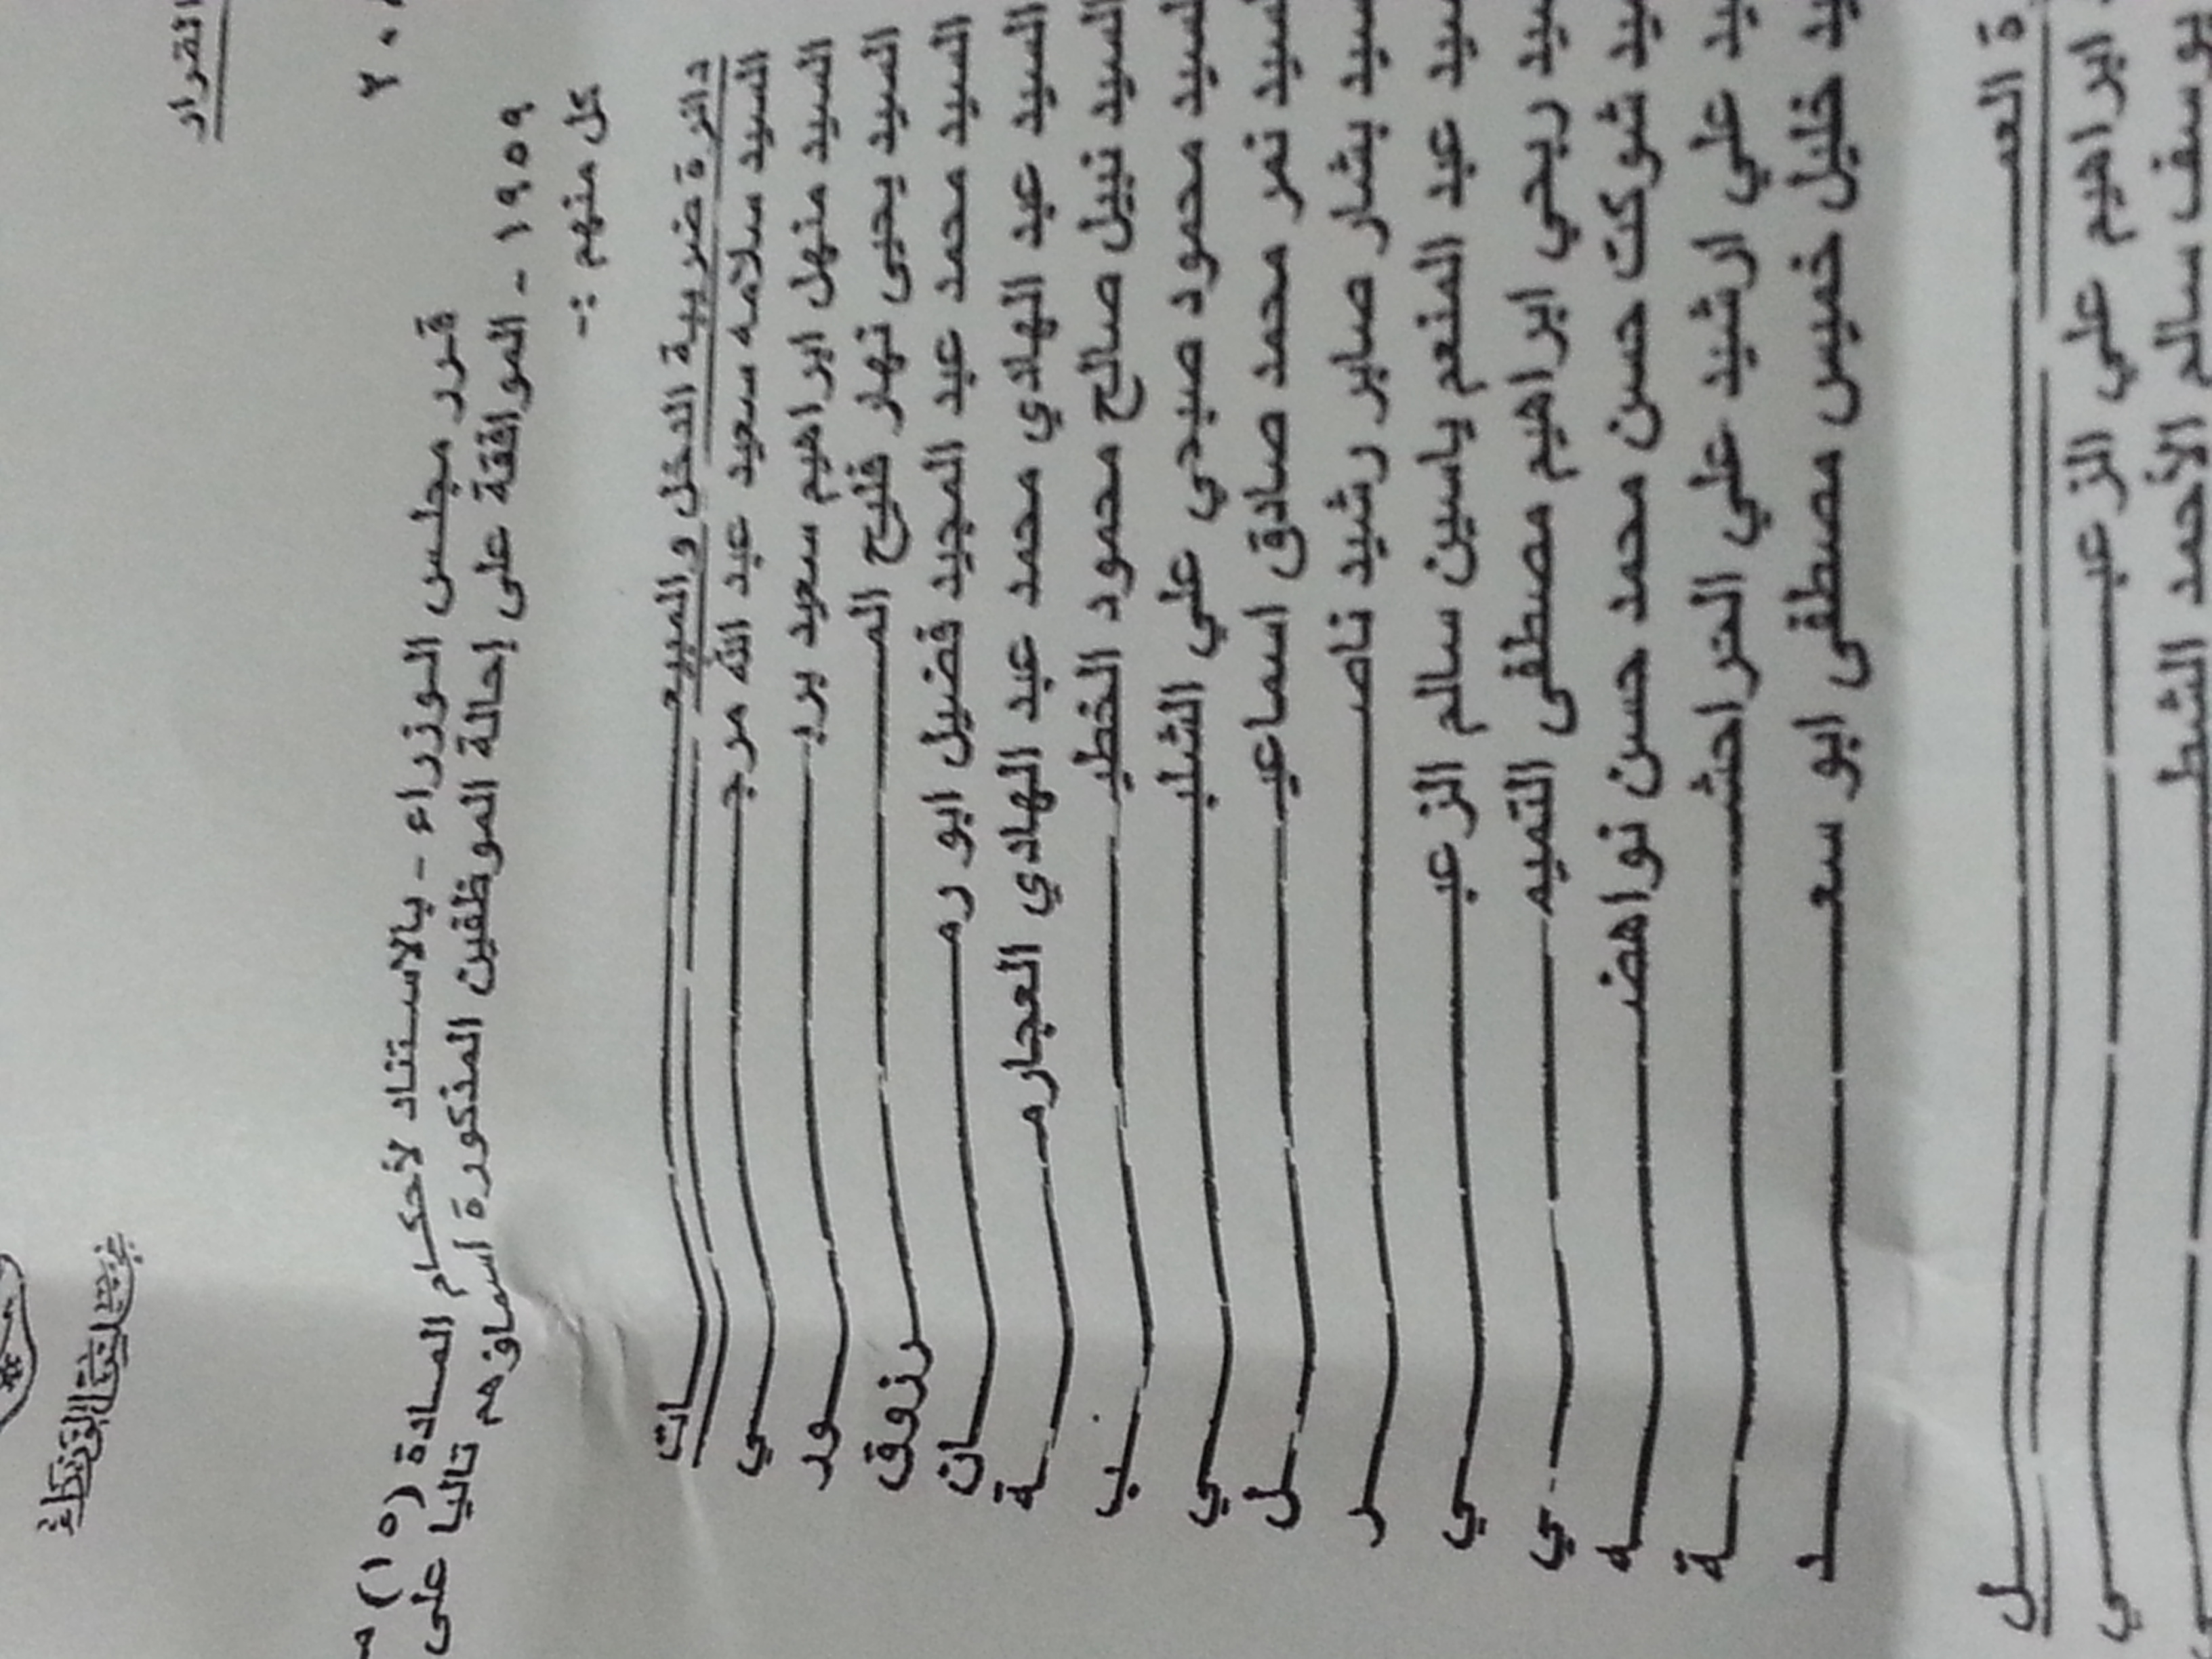 رئاسة الوزراء
القرار
قرر مجلس الوزراء - بالاستناد لأحكام المادة (١٥)
١٩٥٩ - الموافقة على إحالة الموظفين المذكورة اسماؤهم تاليا على
كل منهم :-
دائرة ضريبة الدخل والمبيعات
السيد سلامه سعيد عبد الله مرجي
السيد منهل ابراهيم سعيد بربور
السيد يحيى نهار فليح المرزوق
السيد محمد عبد المجيد فضيل ابو رمان
السيد عبد الهادي محمد عبد الهادي العجارمة
السيد نبيل صالح محمود الخطيب
السيد محمود صبحي علي الشلبي
السيد نمر محمد صادق اسماعيل
السيد بشار صابر رشيد ناصر
السيد عبد المنعم ياسين سالم الزعبي
السيد ربحي ابراهيم مصطفى التميمي
يد شوكت حسن محمد حسن نواهضه
يد علي ارشيد علي الحراحشة
يد خليل خميس مصطفى ابو سعد
ة العمل
ابراهيم علي الزعبي
يوسف سالم الأحمد الشطي